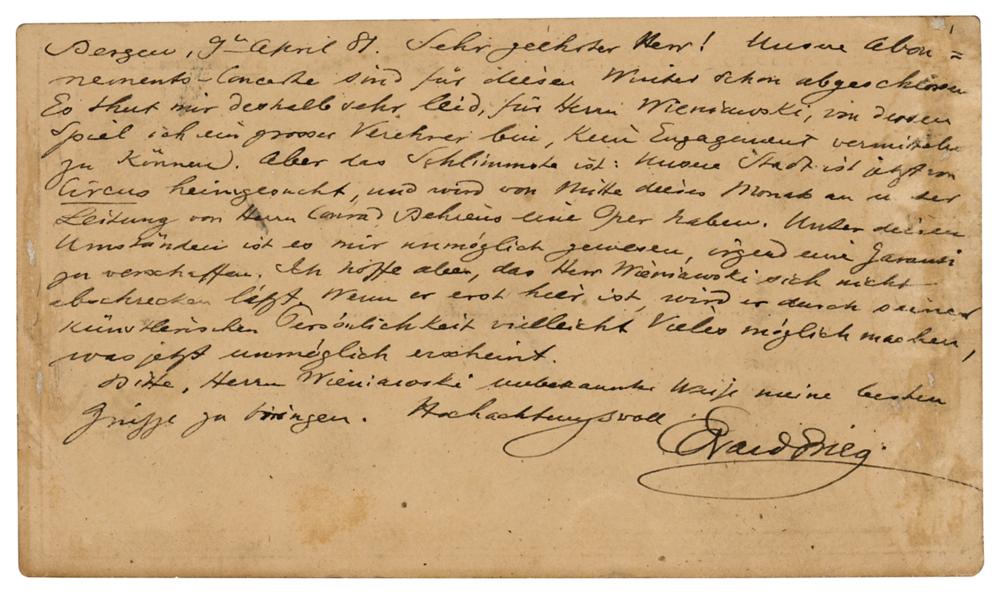 Bergen, 9th April 81. Sehr geehrter Herr! Unsere Abon=
nements-Concerte sind für diesen Winter schon abgeschlossen
Es thut mir deshalb sehr leid, für Herrn Wieniawski, von dessen
Spiel ich ein grosser Verehrer bin, kein Engagement vermitteln
zu können. Aber das Schlimmste ist: Unsere Stadt ist jetzt von
Circus heimgesucht, und wird von Mitte dieses Monats an u. der
Leitung von Herrn Conrad Behrens eine Oper haben. Unter diesen
Umständen ist es mir unmöglich gewesen, irgend eine Garanti
zu verschaffen. Ich hoffe aber, das Herr Wieniawski sich nicht
abschrecken läßt. Wenn er erst hier ist, wird er durch seine
künstlerischen Persönlichkeit vielleicht Vieles möglich machen,
was jetzt unmöglich erscheint.
Bitte, Herrn Wieniawski unbekannter Weise meine besten
Grüsse zu bringen. Hochachtungsvoll
Edvard Grieg.